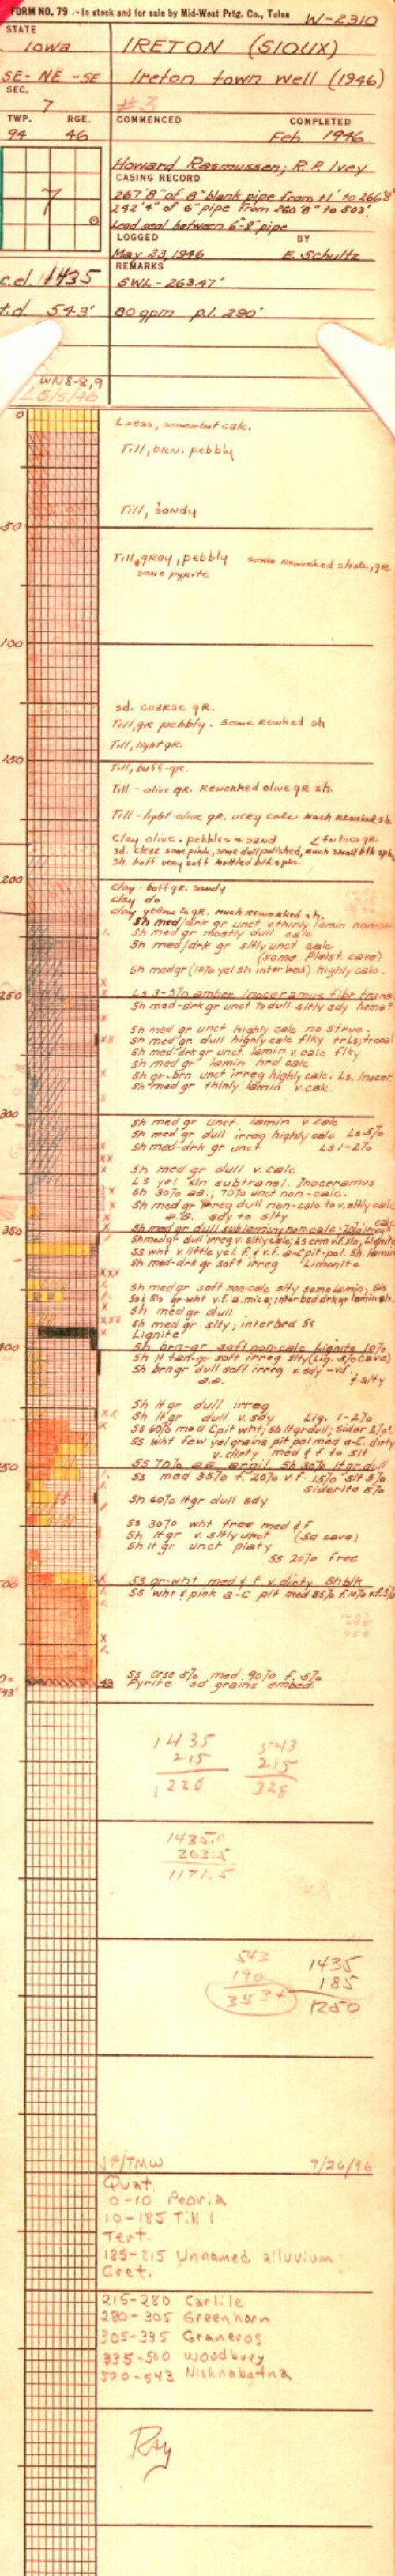 FORM NO. 79 - In stock and for sale by Mid-West Prtg. Co., Tulsa
W-2310
STATE
Iowa
IRETON (SIOUX)
SE- NE -SE
Ireton town well (1946)
SEC.
7
#3
TWP.
RGE.
COMMENCED
COMPLETED
94
46
Feb. 1946
Howard Rasmussen; R.P. Ivey
CASING RECORD
267'8" of 8" blank pipe from +1' to 266'8"
242'4" of 6" pipe from 260'8" to 503'
Lead seal between 6"-8" pipe
7
LOGGED
BY
May 23, 1946
E. Schultz
REMARKS
c.el. 1435
SWL - 263.47'
t.d. 543'
80 gpm p.l. 290'
WN8-8,9
L 5/5/46
0
Loess, somewhat calc.
Till, brn. pebbly
Till, sandy
50
Till, gray, pebbly some reworked shale, gr.
some pyrite
100
sd. coarse gr.
Till, gr pebbly. some rewked sh
Till, light gr.
150
Till, buff-gr.
Till - olive gr. Reworked olive gr sh.
Till - light olive gr. very calc Much Reworked sh
Clay olive. pebbles & sand
sd. clear some pink, some dull polished, much small blk spks
Sh. buff very soft Mottled blk spks.
200
Clay - buff gr. sandy
Clay do
Clay yellow to gr. Much reworked sh.
Sh med/drk gr unct v.thinly lamin non-
Sh med gr mostly dull calc
Sh med/drk gr sltly unct calc
(some Pleist. cave)
Sh medgr (10% yel sh interbed) highly calc.
250
Ls 3-5% amber Inoceramus fibr trans
Sh med-drk gr unct to dull sltly sdy heme?
Sh med gr unct highly calc no struc.
Sh med gr dull highly calc flky
Sh med-drk gr unct. lamin v calc flky
Sh med gr lamin hrd calc
Sh gr-brn unct irreg highly calc. Ls. Inocer
Sh med gr thinly lamin v.calc.
300
Sh med gr unct. lamin v calc
Sh med gr dull irreg highly calc Ls 5%
Sh med-drk gr unct Ls 1-2%
Sh med gr dull v.calc
Ls yel xln subtransl. Inoceramus
Sh 30% aa.; 70% unct non-calc.
Sh med gr irreg dull non-calc to v.sltly calc
a.a. sdy to slty
350
Sh med gr dull sublamin; non-calc - 70% irreg calc
Sh medgr dull irreg v. sltly calc; Ls crm v.f. xln; Lignite
Ss wht v.little yel f & v.f. a-c pit-pol. Sh lamin
Sh med-drk gr soft irreg Limonite
Sh med gr soft non-calc slty some lamin; Sls
Ss & Sls gr-wht v.f. a. mica; interbed drk gr lamin sh.
Sh med gr dull
Sh med gr slty; interbed Ss
Lignite
400
Sh brn-gr soft non-calc Lignite 10%
Sh lt tan-gr soft irreg slty (Lig. 5% cave)
Sh brngr dull soft irreg v.sdy -vf.
a.a. & slty
Sh ltgr dull irreg
Sh ltgr dull v.sdy Lig. 1-2%
Ss 60% med C pit wht; sh ltgr dull; Sider 2%!
Ss wht few yel grains pit pol med a-c. dirty
v.dirty med & f to slt
450
Ss 70% aa argil. Sh 30% ltgr dull
Ss med 35% f. 20% v.f. 15% slt 5%
siderite 5%
Sh 60% ltgr dull sdy
Ss 30% wht free med & f
Sh ltgr v. sltly unct (Sd cave)
Sh ltgr unct platy
Ss 20% free
500
Ss gr-wht med & f v.dirty Sh blk
Ss wht & pink a-c pit med 85% f.10% v.f.5%
43
Ss crse 5% med. 90% f. 5%
Pyrite sd grains embed
1435 543
215 215
1220 328
1435.0
263.5
1171.5
543 1435
190 185
353+ 1250
JP/TMW 9/26/96
Quat.
0-10 Peoria
10-185 Till
Tert.
185-215 Unnamed alluvium
Cret.
215-280 Carlile
280-305 Greenhorn
305-395 Graneros
395-500 Woodbury
500-543 Nishnabotna
Ray